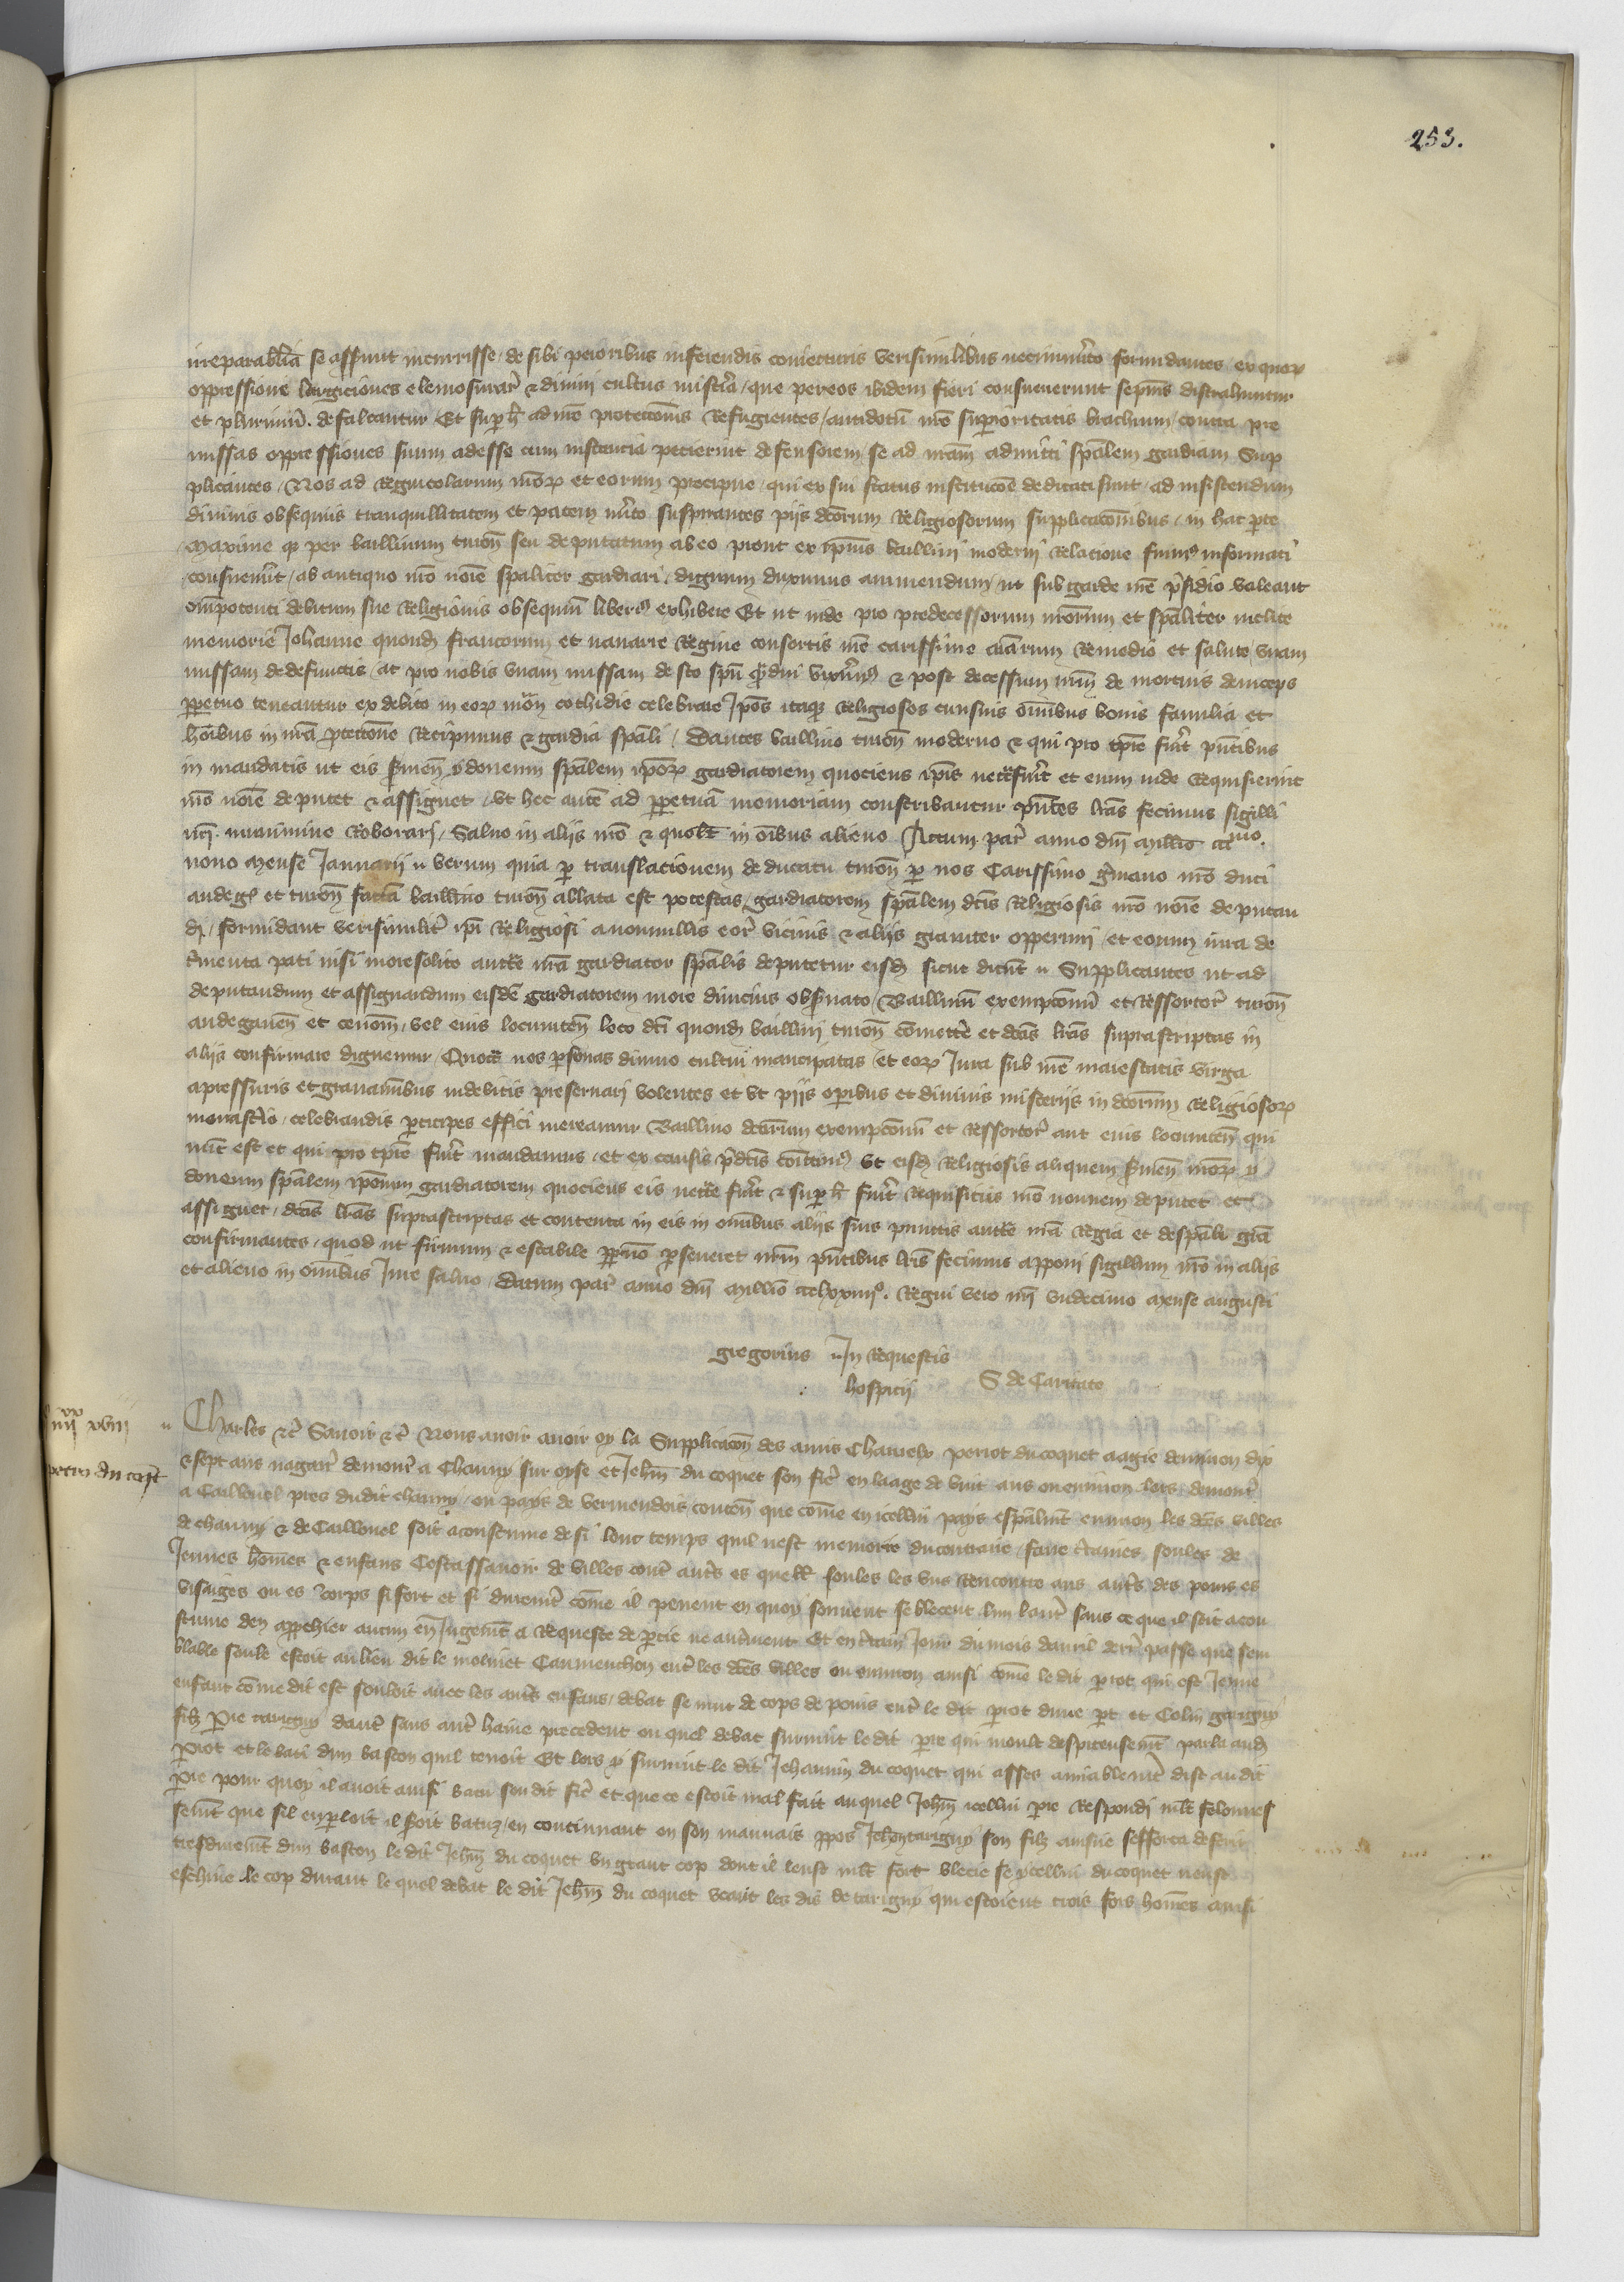 253.
irreparabilia se asserunt incurrisse de sibi peioribus inferendis coniecturis verisimilibus necnimirito formidantes ex quorum
oppressione largiciones elemosinarum & divini cultus misteria que per eos ibidem fieri consueverunt sepius distrahuntur
et plurimum defalcantur Et super hoc ad nostre protectionis refugientes antidotum nostre superioritatis brachium contra pre
missas oppressiones suum adesse cum instancia petierint defensorem se ad nostram admitti specialem gardiam Sup
plicantes Nos ad regnicolarum nostrorum et eorum precipue qui ex sui status institucione dedicati sunt ad insistendum
divinis obsequiis tranquillitatem et pacem merito suspirantes piis dictorum Religiosorum supplicacionibus in hac parte
maxime quod per baillivum turon seu deputatum ab eo prout ex ipsius baillivi moderni relacione fuimus informati
consueverunt ab antiquo nostro nomine specialiter gardiari dignum duximus annuendum ut sub garde nostre presidio valeant
omnipotenti debitum sue Religionis obsequium liberius exhibere Et ut inde pro predecessorum nostrorum et specialiter inclite
memorie Johanne quondam francorum et navarre Regine consortis nostre carissime animarum remedio et salute unam
missam de defunctis ac pro nobis unam missam de sancto spiritu quamdiu vixerimus & post decessum nostrum de mortuis deinceps
perpetuo teneantur ex debito in eorum monasterio cothidie celebrare Ipsos itaque Religiosos cum suis omnibus bonis familia et
hominibus in nostra protectione recipimus & gardia speciali Dantes baillivo turon moderno & qui pro tempore fuerit presentibus
in mandatis ut eis servientem ydoneum specialem ipsorum gardiatorem quociens ipsis necesse fuerit et eum inde requisierint
nostro nomine deputet & assignet Ut hec autem ad perpetuam memoriam conscribantur presentes litteras fecimus sigilli
nostri munimine roborari Salvo in aliis nostro & quolibet in omnibus alieno Actum parisius anno domini millesimo
nono mense Januarii verum quia per translacionem de ducatu turon per nos Carissimo germano nostro duci
andeg et turon factam baillivo turon ablata est potestas gardiatorem specialem dictis Religiosis nostro nomine deputan
di formidant verisimiliter ipsi Religiosi a nonnullis eorum vicinis & aliis graviter opprimi et eorum iura de
trimenta pati nisi more solito auctoritate nostra gardiator specialis deputetur eisdem sicut dicunt Supplicantes ut ad
deputandum et assignandum eisdem gardiatorem more diucius observato Baillivum exempcionum et Ressortorum turon
andegaven et cenoman vel eius locumtenentem loco dicti quondam baillivi turon committere et dictas litteras suprascriptas in
aliis confirmare dignemur Quocirca nos personas divino cultui mancipatas et eorum Iura sub nostre maiestatis virga
a pressuris et gravaminibus indebitis preservari volentes et ut piis operibus et divinis misteriis in dictorum Religiosorum
monasterio celebrandis participes effici mereamur Baillivo dictarum exempcionum et ressortorum aut eius locumtenenti qui
nunc est et qui pro tempore fuerit mandamus et ex causis predictis committimus ut eisdem Religiosis aliquem servientem nostrorum y
doneum specialem ipsorum gardiatorem quociens eis necesse fuerit & super hoc fuerit requisitus nostro nomine deputet et
assignet dictas litteras suprascriptas et contenta in eis in omnibus aliis suis punctis auctoritate nostra Regia et de speciali gratia
confirmantes quod ut firmum & estabile perpetuo perseveret nostrum presentibus litteris fecimus apponi sigillum nostro in aliis
et alieno in omnibus Iure salvo Datum parisius anno domini millesimo ccclxxiiiiº. Regni vero nostri undecimo mense augusti
gregorius In Requestis
hospicii S de Caritate
iiii xx xviii
pierre du coquet
Charles etc Savoir etc Nous avoir avoir oy la Supplicacion des amis Charnelx perrot du coquet aagie denviron dix
& sept ans nagaires demourant a Chauny sur oyse et Jehan du coquet son frere en laage de vint ans ou environ lors demourant
a Caillouel pres dudit chauny ou pays de vermendois contenant que comme en icellui pays especialment environ les dictes villes
de chauny & de Caillouel soit acoustume de si lonc temps quil nest memoire du contraire faire certaines soules de
Jeunes hommes & enfans Cestassavoir de villes contre autres es quelles soules les uns rencontre aus autres des poins es
visaiges ou es corps si fort et si durement comme il peuent en quoy souvent se blecent lun lautre sans ce que il soit acou
stume den appechier aucun en Jugement a requeste de partie ne autrement Et en certain Jour du mois davril derrenier passe que sem
blable soule estoit au lieu dit le molinet Caumenchon entre les dictes villes ou environ ainsi comme le dit perrot qui est Jeune
enfant comme dit est souloit avec les autres enfans debat se mut de cops de poins entre le dit perrot dune part et Colin tarigny
filz pierre tarigny dautre sans autre haine precedent ou quel debat survint le dit pierre qui moult despiteusement parla audit
perrot et le bati dun baston quil tenoit Et lors y survint le dit Jehannin du coquet qui asses amiablement dist au dit
pierre pour quoy il avoit ainsi batu son dit frere et que ce estoit mal fait auquel Jehan icellui pierre respondi moult felonnes
sement que sil en parloit il seroit batuz en continuant en son mauvais propos Jehan tarigny son filz ainsne sefforca de ferir
tresdurement dun baston le dit Jehan du coquet un grant cop dont il leust moult fort blecie se ycellui du coquet neust
eschive le cop durant le quel debat le dit Jehan du coquet veant les diz de tarigny qui estoient trois fors hommes ainsi